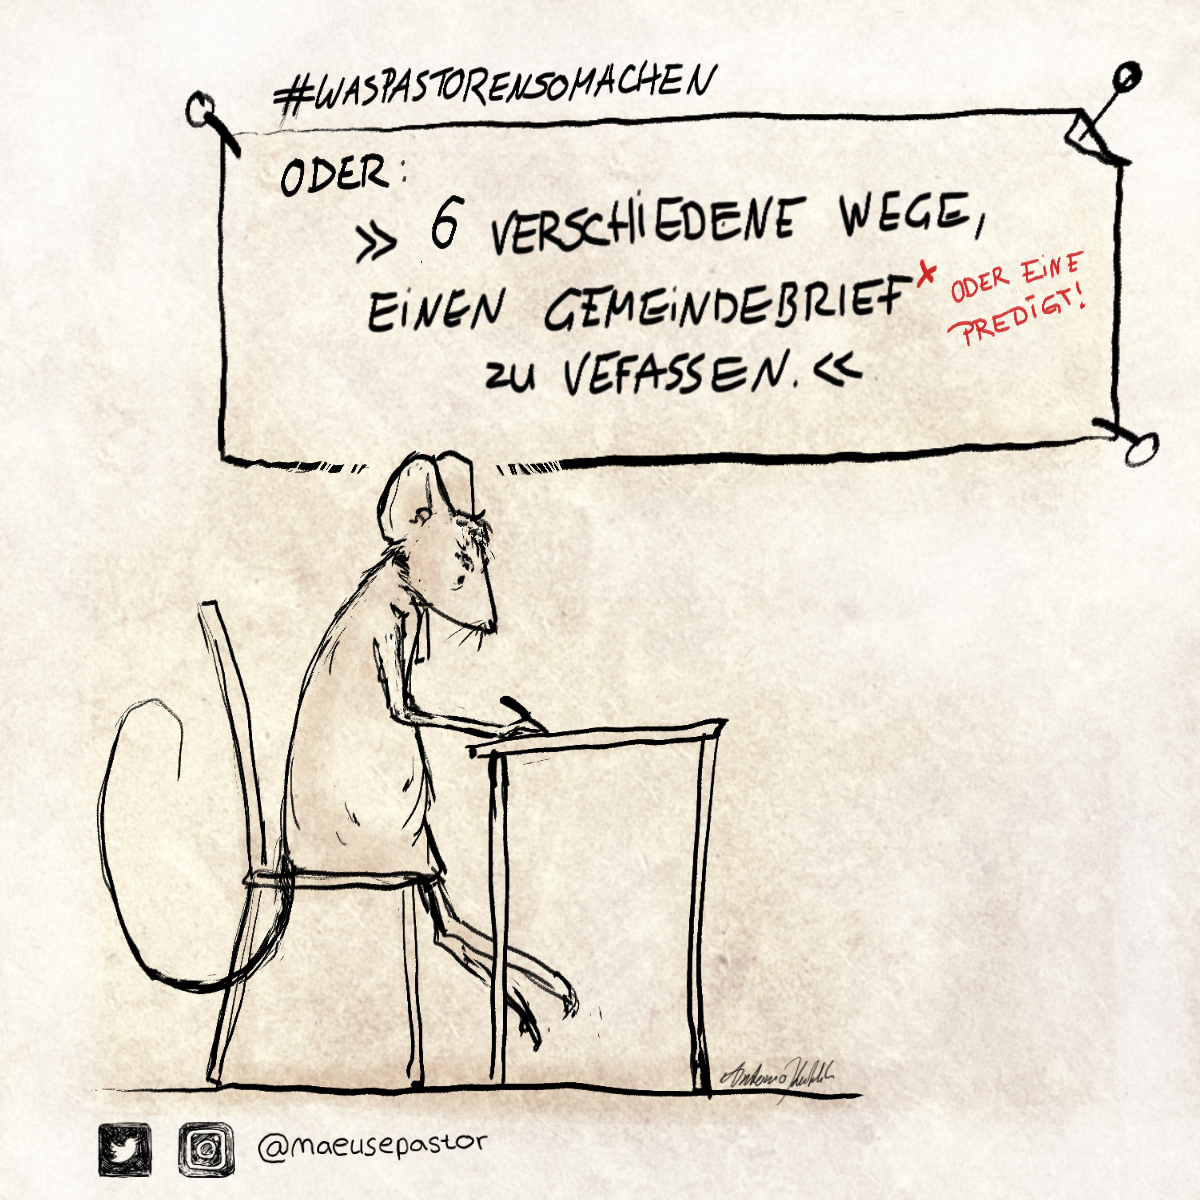 #WASPASTORENSOMACHEN
ODER:
» 6 VERSCHIEDENE WEGE,
EINEN GEMEINDEBRIEF* ODER EINE
PREDIGT!
ZU VEFASSEN. «
@maeusepastor